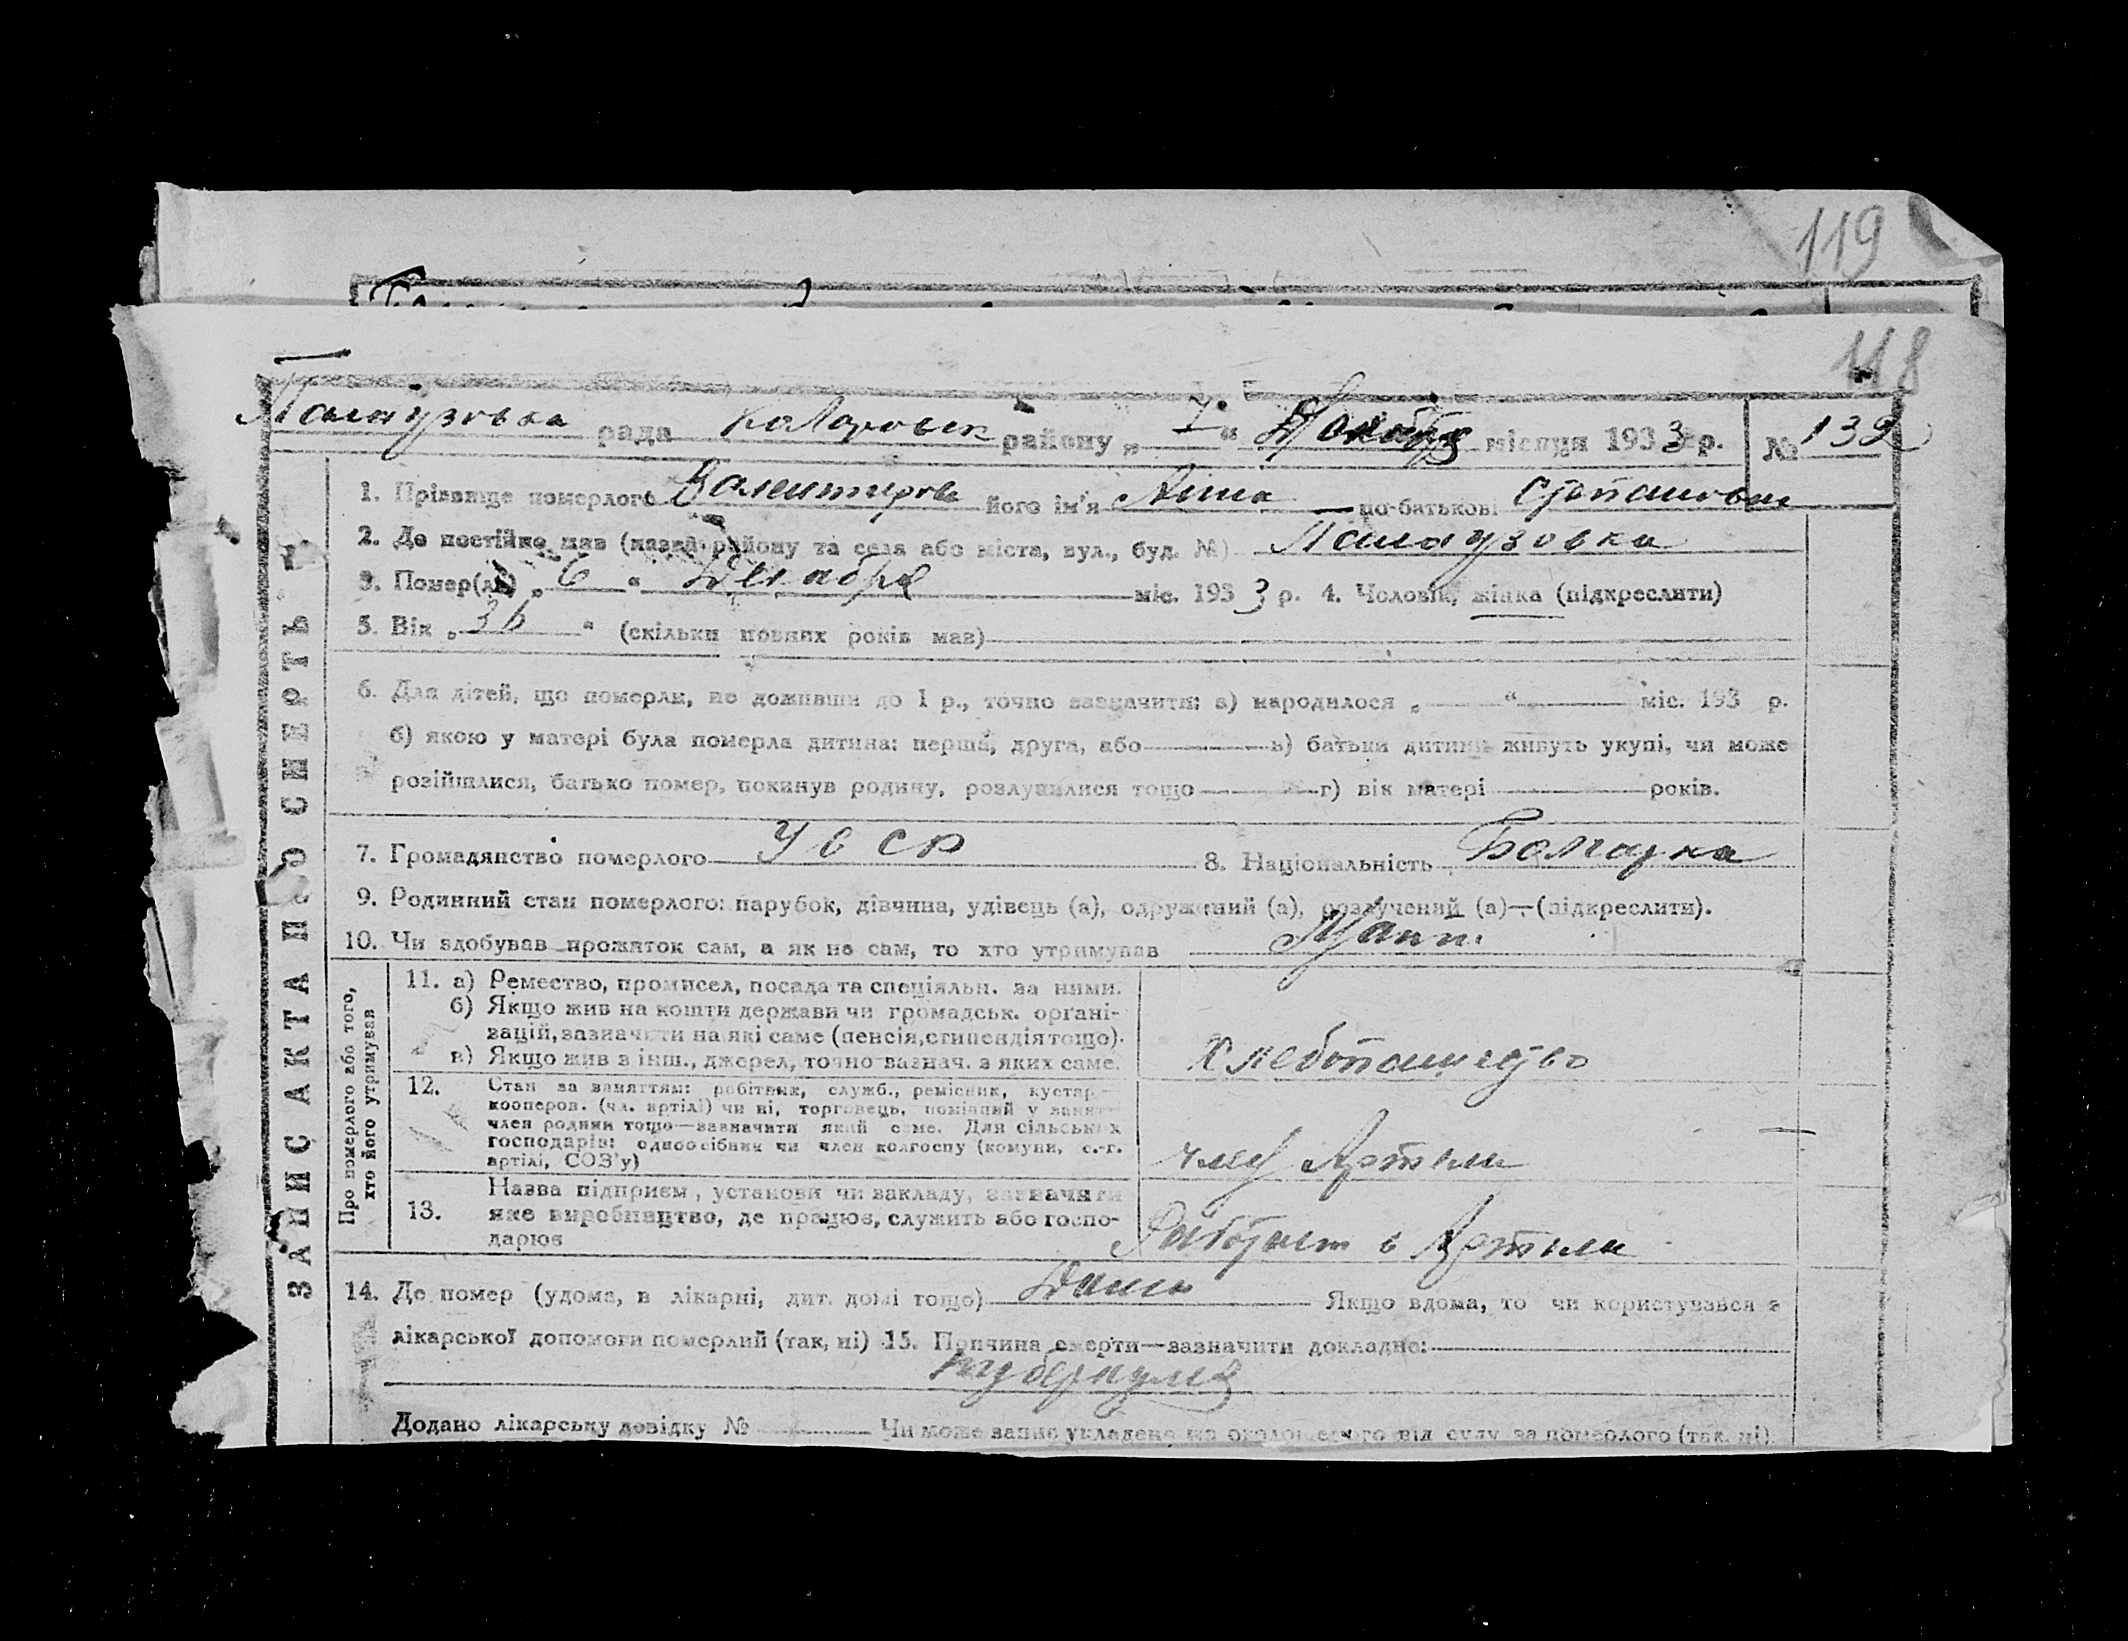 119
118
Палаузовка рада Коларовск району „ 7 “ місяця 1933 р. № 132
1. Прізвище померлого Валентирова його ім'я Анна по-батькові Степановна
2. Де постійно жив (назва району та села або міста, вул., буд. №) Палаузовка
3. Помер(ла) „ 6 “ Декабря міс. 1933 р. 4. Чоловік, жінка (підкреслити)
5. Вік „ 36 “ (скільки повних років мав)
6. Для дітей, що померли, не доживши до 1 р., точно зазначити: а) народилося „ “ міс. 193 р.
б) якою у матері була померла дитина: перша, друга, або в) батьки дитини живуть укупі, чи може
розійшлися, батько помер, покинув родину, розлучилися тощо г) вік матері років.
7. Громадянство померлого УССР 8. Національність Болгарка
9. Родинний стан померлого: парубок, дівчина, удівець (а), одружений (а), розлучений (а)—(підкреслити).
10. Чи здобував прожиток сам, а як не сам, то хто утримував
ЗАПИС АКТА ПРО СМЕРТЬ
Про померлого або того,
хто його утримував
11. а) Ремество, промисел, посада та спеціяльн. за ними.
б) Якщо жив на кошти держави чи громадськ. органі-
зацій, зазначити на які саме (пенсія, стипендія тощо).
в) Якщо жив з інш., джерел, точно зазнач. з яких саме.
Хлебопашество
12. Стан за заняттям: робітник, служб., ремісник, кустар
кооперов. (чл. артілі) чи ні, торговець, помічний у занят
член родини тощо—зазначити який саме. Для сільських
господарів: одноосібник чи член колгоспу (комуни, с.-г.
артілі, СОЗ'у)
член Артели
13. Назва підприєм, установи чи закладу, зазначити
яке виробництво, де працює, служить або госпо-
дарює
Работает в Артели
14. Де помер (удома, в лікарні, дит. домі тощо) Дома Якщо вдома, то чи користувався з
лікарської допомоги померлий (так, ні) 15. Причина смерти—зазначити докладно:
туберкулез
Додано лікарську довідку № Чи може запис укладено на оголошеного від суду за померлого (так, ні)